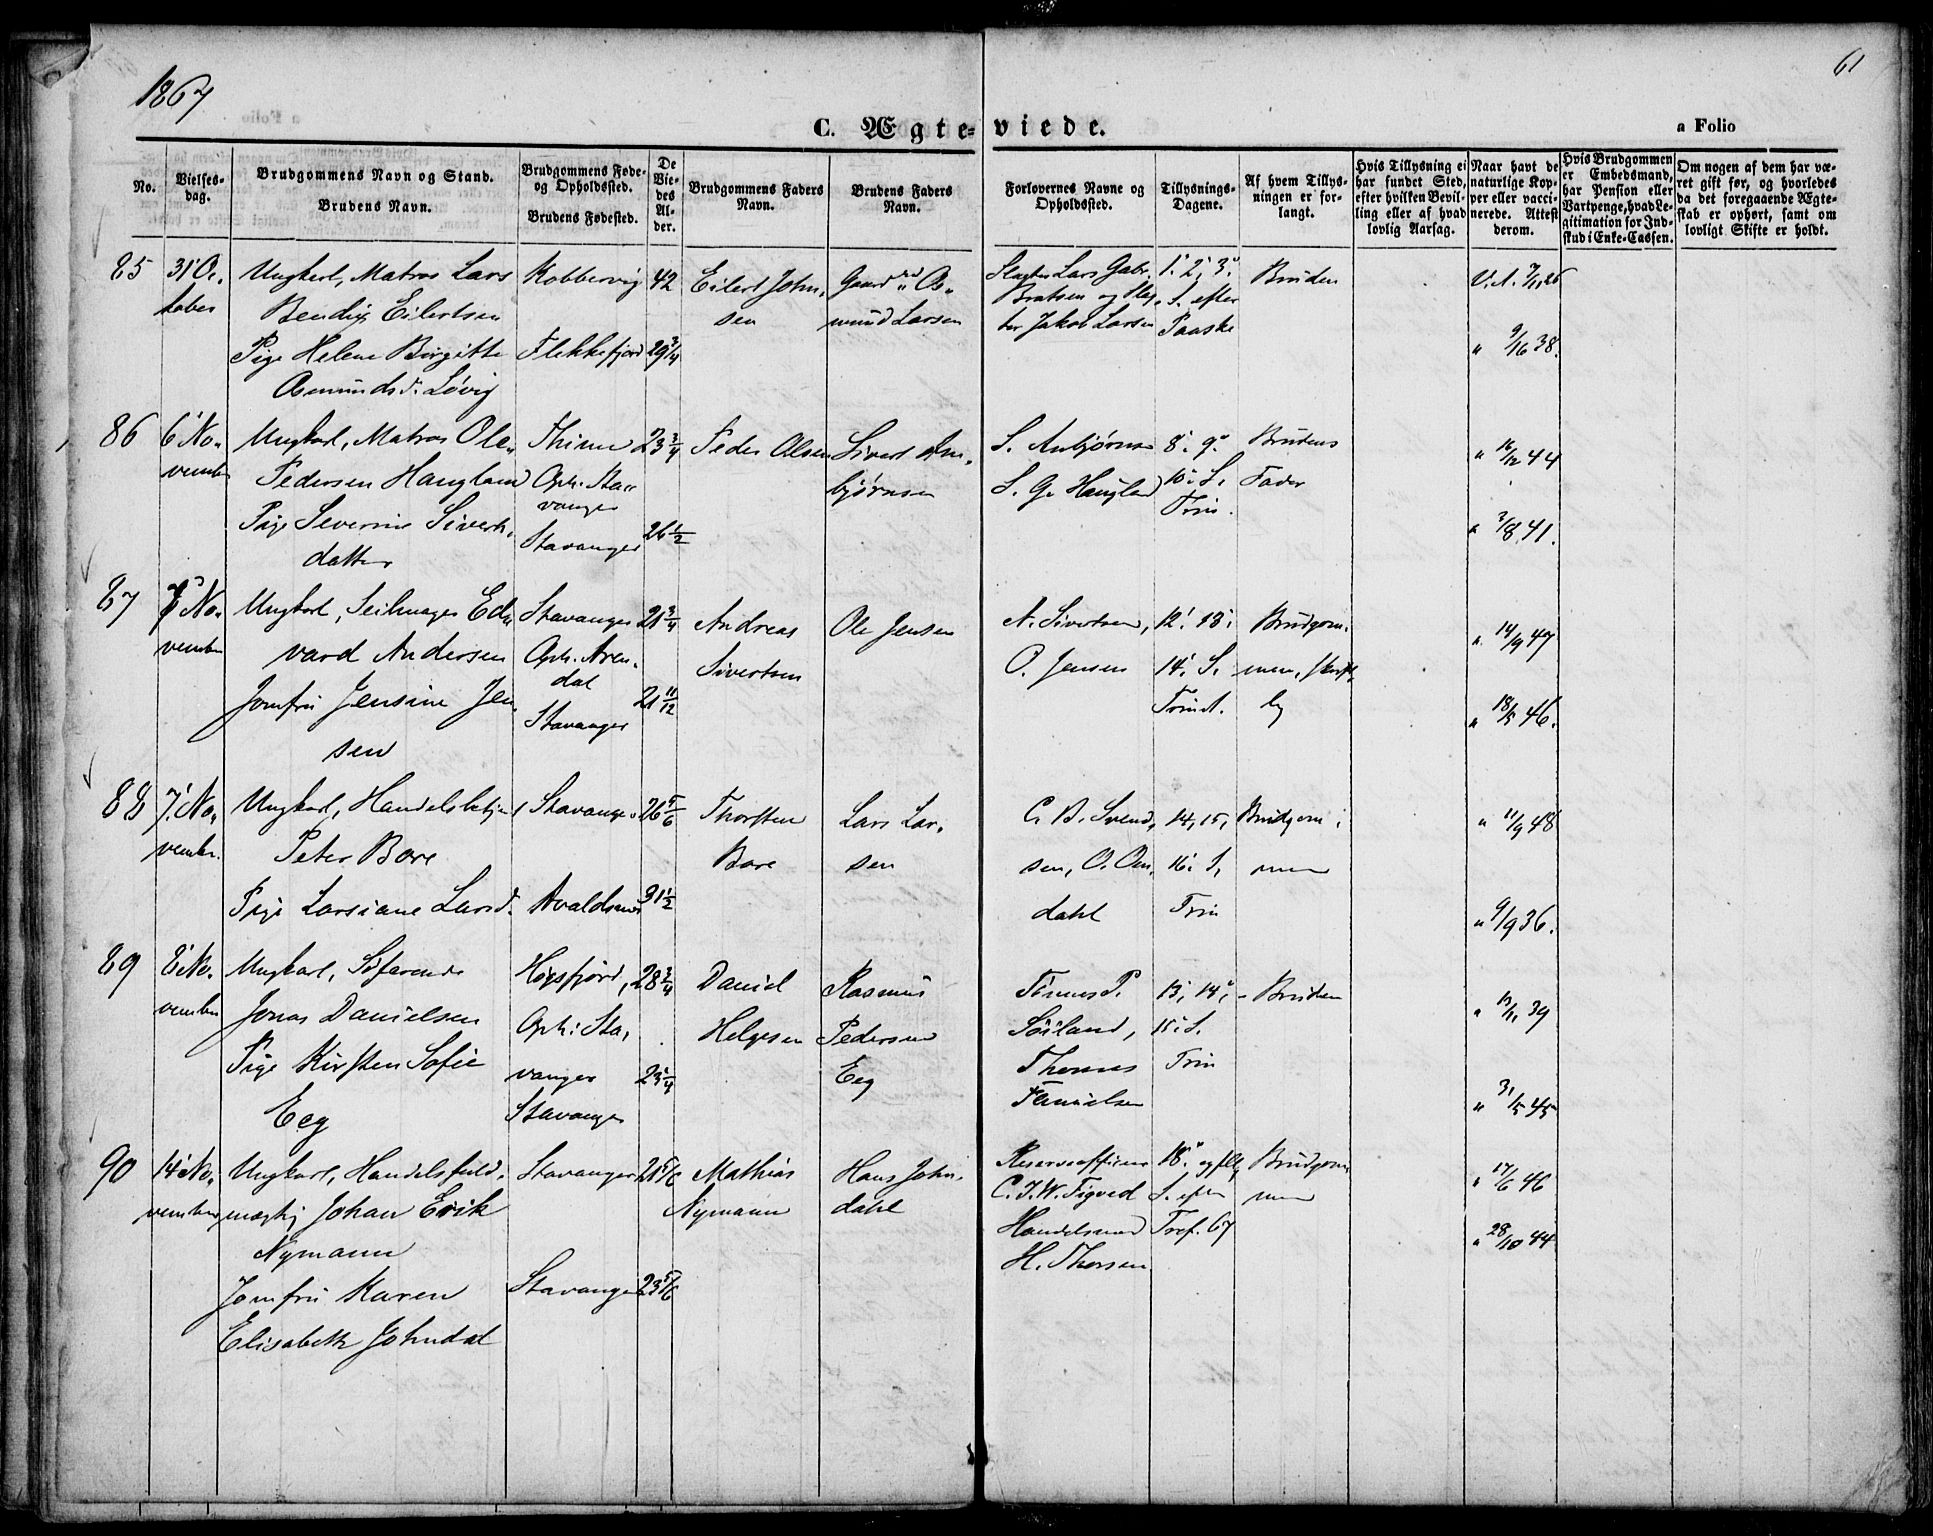 1867
61
C. Ægteviede.
a Folio
No.
Vielses-
dag.
Brudgommens Navn og Stand.
Brudens Navn.
Brudgommens Føde-
og Opholdssted.
Brudens Fødested.
De
Vie-
des
Al-
der.
Brudgommens Faders
Navn.
Brudens Faders
Navn.
Forlovernes Navne og
Opholdssted.
Tillysnings-
Dagene.
Af hvem Tillys-
ningen er for-
langt.
Hvis Tillysning ei
har fundet Sted,
efter hvilken Bevil-
ling eller af hvad
lovlig Aarsag.
Naar havt de
naturlige Kop-
per eller vacci-
nerede. Attest
derom.
Hvis Brudgommen
er Embedsmand,
har Pension eller
Vartpenge, hvad Le-
gitimation for Ind-
skud i Enke-Cassen.
Om nogen af dem har væ-
ret gift før, og hvorledes
da det foregaaende Ægte-
skab er ophørt, samt om
lovligt Skifte er holdt.
85
31 Oc-
tober
Ungkarl, Matros Lars
Bendix Eilertsen
Pige Helene Birgitte
Asmundsd. Løvig
Kobbervig
Flekkefjord
42
29 3/4
Eilert John-
sen
Gaard As-
mund Larsen
Lars Gabr.
Bratsen og
Jakob Larsen
1. 2. 3.
S. efter
Paaske
Bruden
V.A. 7/11 26
" 9/16 38.
86
6 No-
vember
Ungkarl, Matros Ole
Pedersen Haugland
Pige Severine Siverts-
datter
Thime
Oph. Sta-
vanger
Stavanger
23 3/4
26 1/2
Peder Olsen
Sivert An-
bjørnsen
S. Anbjørnsen
S. G. Haugland
8. 9.
10. S.
Trin.
Brudens
Fader
" 16/12 44
" 3/8 41.
87
7 No-
vember
Ungkarl, Seilmager Ed-
vard Andersen
Jomfru Jensine Jen-
sen
Stavanger
Oph. Aren-
dal
Stavanger
21 3/4
21 11/12
Andreas
Sivertsen
Ole Jensen
A. Sivertsen,
O. Jensen
12. 13.
14. S.
Trinit.
Brudgom-
men, skrift-
lig
" 14/9 47
" 18/5 46.
88
7. No-
vembr.
Ungkarl, Handelsbetj.
Peter Bore
Pige Larsiane Larsd.
Stavanger
Avaldsnes
26 5/6
31 1/2
Thorsten
Bore
Lars Lar-
sen
C. B. Svend-
sen, O. Om-
dahl
14, 15,
16. S.
Trin
Brudgom-
men
" 11/9 48
" 9/9 36.
89
8 No-
vember
Ungkarl, Søfarende
Jonas Danielsen
Pige Kirsten Sofie
Eeg
Høgsfjord,
Oph: Sta-
vanger
Stavanger
28 3/4
23 1/4
Daniel
Helgesen
Rasmus
Pedersen
Eeg
Tønnes P.
Soiland,
Thomas
Danielsen
13, 14,
15. S.
Trin
Bruden
" 13/11 39
" 31/5 45
90
14 No-
vember
Ungkarl, Handelsfuld-
mægtig Johan Erik
Nymann
Jomfru Karen
Elisabeth Johndal
Stavanger
Stavanger
21 5/6
23 5/6
Mathias
Nymann
Hans John-
dahl
Reserveofficier
C. J. W. Tigved
Handelsmand
H. Thorsen
18. og flg.
S. efter
Tref. 67
Brudgom-
men
" 17/6 46
" 28/10 44